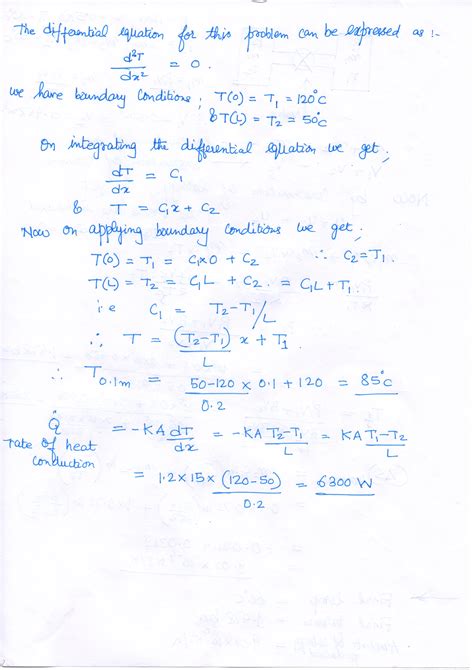 The differential equation for this problem can be expressed as :-
d²T/dx² = 0.
we have boundary conditions; T(0) = T₁ = 120°C
& T(L) = T₂ = 50°C
On integrating the differential equation we get;
dT/dx = C₁
& T = C₁x + C₂
Now on applying boundary conditions we get;
T(0) = T₁ = C₁×0 + C₂ ∴ C₂=T₁.
T(L) = T₂ = C₁L + C₂. = C₁L + T₁.
i.e C₁ = T₂-T₁/L
∴ T = (T₂-T₁)/L x + T₁
∴ T₀.₁ₘ = 50-120 × 0.1 + 120/0.2 = 85°C
Q̇ = -KA dT/dx = -KA T₂-T₁/L = KA T₁-T₂/L
rate of heat conduction
= 1.2×15× (120-50)/0.2 = 6300 W